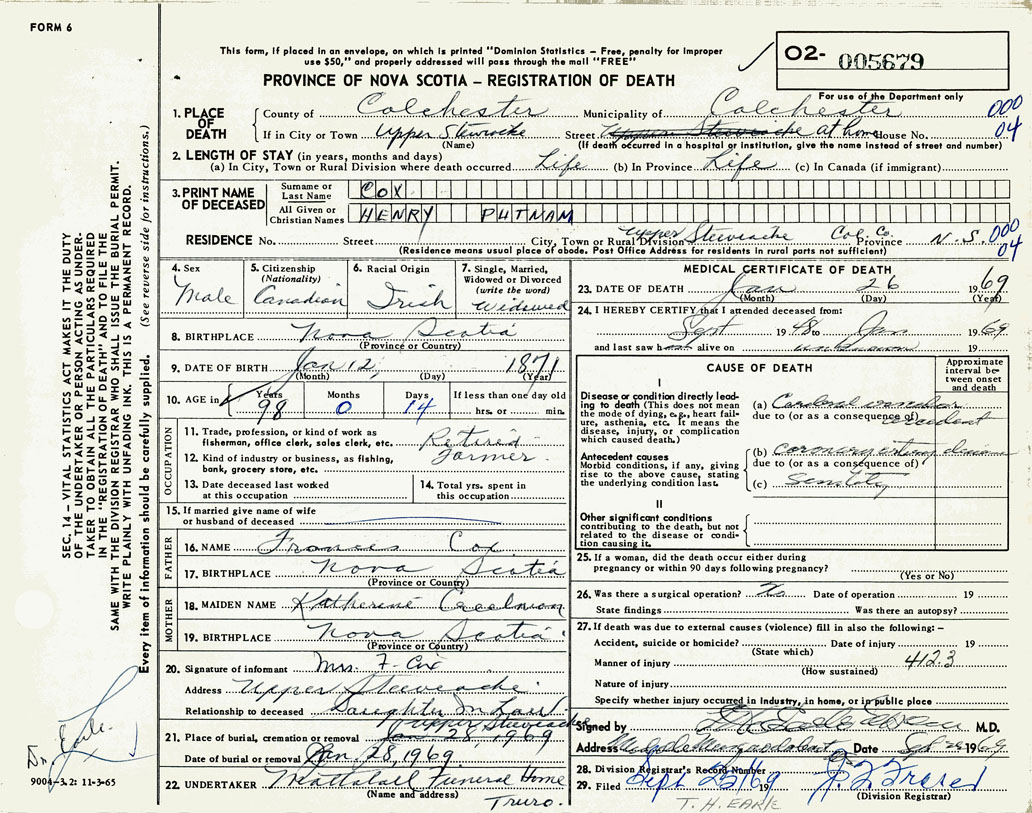 FORM 6
This form, if placed in an envelope, on which is printed "Dominion Statistics – Free, penalty for improper
use $50," and properly addressed will pass through the mail "FREE"
O2- 005679
PROVINCE OF NOVA SCOTIA – REGISTRATION OF DEATH
For use of the Department only
1. PLACE OF DEATH
County of Colchester Municipality of Colchester 000
If in City or Town Upper Stewiacke Street at home House No. 04
(Name) (If death occurred in a hospital or institution, give the name instead of street and number)
2. LENGTH OF STAY (in years, months and days)
(a) In City, Town or Rural Division where death occurred Life (b) In Province Life (c) In Canada (if immigrant)
3. PRINT NAME OF DECEASED
Surname or Last Name COX
All Given or Christian Names HENRY PUTNAM
RESIDENCE No. Street City, Town or Rural Division Upper Stewiacke Col. Co. Province N.S. 000
(Residence means usual place of abode. Post Office Address for residents in rural parts not sufficient) 04
4. Sex
Male
5. Citizenship
(Nationality)
Canadian
6. Racial Origin
Irish
7. Single, Married,
Widowed or Divorced
(write the word)
Widowed
8. BIRTHPLACE Nova Scotia
(Province or Country)
9. DATE OF BIRTH Jan 12, 1871
(Month) (Day) (Year)
10. AGE in Years Months Days If less than one day old
98 0 14 hrs. or min.
OCCUPATION
11. Trade, profession, or kind of work as
fisherman, office clerk, sales clerk, etc. Retired
12. Kind of industry or business, as fishing,
bank, grocery store, etc. Farmer
13. Date deceased last worked
at this occupation
14. Total yrs. spent in
this occupation
15. If married give name of wife
or husband of deceased
FATHER
16. NAME Francis Cox
17. BIRTHPLACE Nova Scotia
(Province or Country)
MOTHER
18. MAIDEN NAME Katherine
19. BIRTHPLACE Nova Scotia
(Province or Country)
20. Signature of informant Mrs. F. Cox
Address Upper Stewiacke
Relationship to deceased Daughter In Law
Upper Stewiacke
21. Place of burial, cremation or removal Jan 28, 1969
Date of burial or removal Jan. 28, 1969
22. UNDERTAKER Mattatall Funeral Home
(Name and address) Truro.
MEDICAL CERTIFICATE OF DEATH
23. DATE OF DEATH Jan 26 1969
(Month) (Day) (Year)
24. I HEREBY CERTIFY that I attended deceased from:
Sept 1948 to Jan 1969
and last saw h alive on unknown 19
CAUSE OF DEATH
Approximate
interval be-
tween onset
and death
I
Disease or condition directly lead-
ing to death (This does not
mean the mode of dying, e.g., heart fail-
ure, asthenia, etc. It means the
disease, injury, or complication
which caused death.)
(a) accident
due to (or as a consequence of)
Antecedent causes
Morbid conditions, if any, giving
rise to the above cause, stating
the underlying condition last.
(b) coronary artery disease
due to (or as a consequence of)
(c) Senility
II
Other significant conditions
contributing to the death, but not
related to the disease or condi-
tion causing it.
25. If a woman, did the death occur either during
pregnancy or within 90 days following pregnancy?
(Yes or No)
26. Was there a surgical operation? No Date of operation 19
State findings Was there an autopsy?
27. If death was due to external causes (violence) fill in also the following: –
Accident, suicide or homicide? Date of injury 19
(State which)
Manner of injury 412.3
(How sustained)
Nature of injury
Specify whether injury occurred in industry, in home, or in public place
Signed by M.D.
Address Date Sept 1969
28. Division Registrar's Record Number
29. Filed Sept 25/69 19
(Division Registrar)
T. H. EARLE
SEC. 14 – VITAL STATISTICS ACT MAKES IT THE DUTY
OF THE UNDERTAKER OR PERSON ACTING AS UNDER-
TAKER TO OBTAIN ALL THE PARTICULARS REQUIRED
IN THE "REGISTRATION OF DEATH" AND TO FILE THE
SAME WITH THE DIVISION REGISTRAR WHO SHALL ISSUE THE BURIAL PERMIT.
WRITE PLAINLY WITH UNFADING INK. THIS IS A PERMANENT RECORD.
Every item of information should be carefully supplied. (See reverse side for instructions.)
Dr. Earle
9004-3.2: 11-3-65